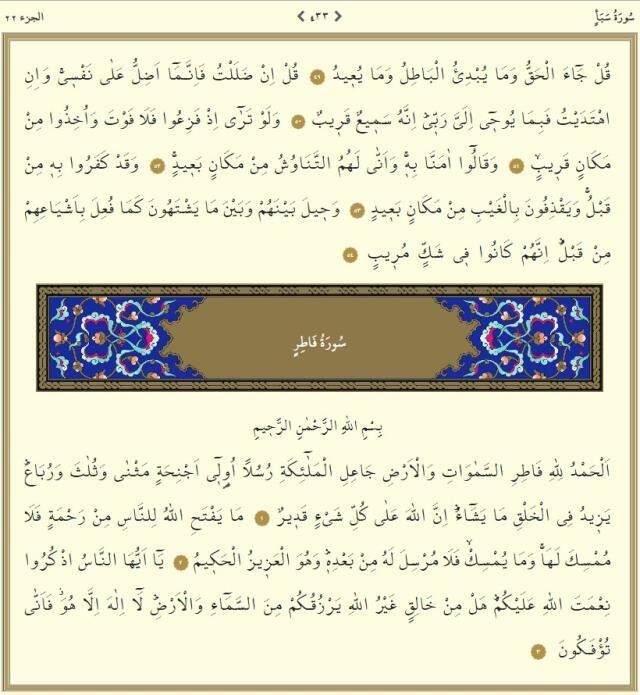 سُورَةُ سَبَأٍ ٤٣٣ الجزء ٢٢
قُلْ جَٓاءَ الْحَقُّ وَمَا يُبْدِئُ الْبَاطِلُ وَمَا يُع۪يدُ ٤٩ قُلْ اِنْ ضَلَلْتُ فَاِنَّمَٓا اَضِلُّ عَلٰى نَفْس۪يۚ وَاِنِ
اهْتَدَيْتُ فَبِمَا يُوح۪ٓي اِلَيَّ رَبّ۪يۜ اِنَّهُ سَم۪يعٌ قَر۪يبٌ ٥٠ وَلَوْ تَرٰٓى اِذْ فَزِعُوا فَلَا فَوْتَ وَاُخِذُوا مِنْ
مَكَانٍ قَر۪يبٍۙ ٥١ وَقَالُٓوا اٰمَنَّا بِه۪ۚ وَاَنّٰى لَهُمُ التَّنَاوُشُ مِنْ مَكَانٍ بَع۪يدٍۚ ٥٢ وَقَدْ كَفَرُوا بِه۪ مِنْ
قَبْلُۚ وَيَقْذِفُونَ بِالْغَيْبِ مِنْ مَكَانٍ بَع۪يدٍ ٥٣ وَح۪يلَ بَيْنَهُمْ وَبَيْنَ مَا يَشْتَهُونَ كَمَا فُعِلَ بِاَشْيَاعِهِمْ
مِنْ قَبْلُۜ اِنَّهُمْ كَانُوا ف۪ي شَكٍّ مُر۪يبٍ ٥٤
سُورَةُ فَاطِرٍ
بِسْمِ اللهِ الرَّحْمٰنِ الرَّح۪يمِ
اَلْحَمْدُ لِلّٰهِ فَاطِرِ السَّمٰوَاتِ وَالْاَرْضِ جَاعِلِ الْمَلٰٓئِكَةِ رُسُلًا اُو۬ل۪ٓي اَجْنِحَةٍ مَثْنٰى وَثُلٰثَ وَرُبَاعَۜ
يَز۪يدُ فِي الْخَلْقِ مَا يَشَٓاءُۜ اِنَّ اللهَ عَلٰى كُلِّ شَيْءٍ قَد۪يرٌ ١ مَا يَفْتَحِ اللهُ لِلنَّاسِ مِنْ رَحْمَةٍ فَلَا
مُمْسِكَ لَهَاۚ وَمَا يُمْسِكْۙ فَلَا مُرْسِلَ لَهُ مِنْ بَعْدِه۪ۜ وَهُوَ الْعَز۪يزُ الْحَك۪يمُ ٢ يَٓا اَيُّهَا النَّاسُ اذْكُرُوا
نِعْمَتَ اللهِ عَلَيْكُمْۜ هَلْ مِنْ خَالِقٍ غَيْرُ اللهِ يَرْزُقُكُمْ مِنَ السَّمَٓاءِ وَالْاَرْضِۜ لَٓا اِلٰهَ اِلَّا هُوَۘ فَاَنّٰى
تُؤْفَكُونَ ٣